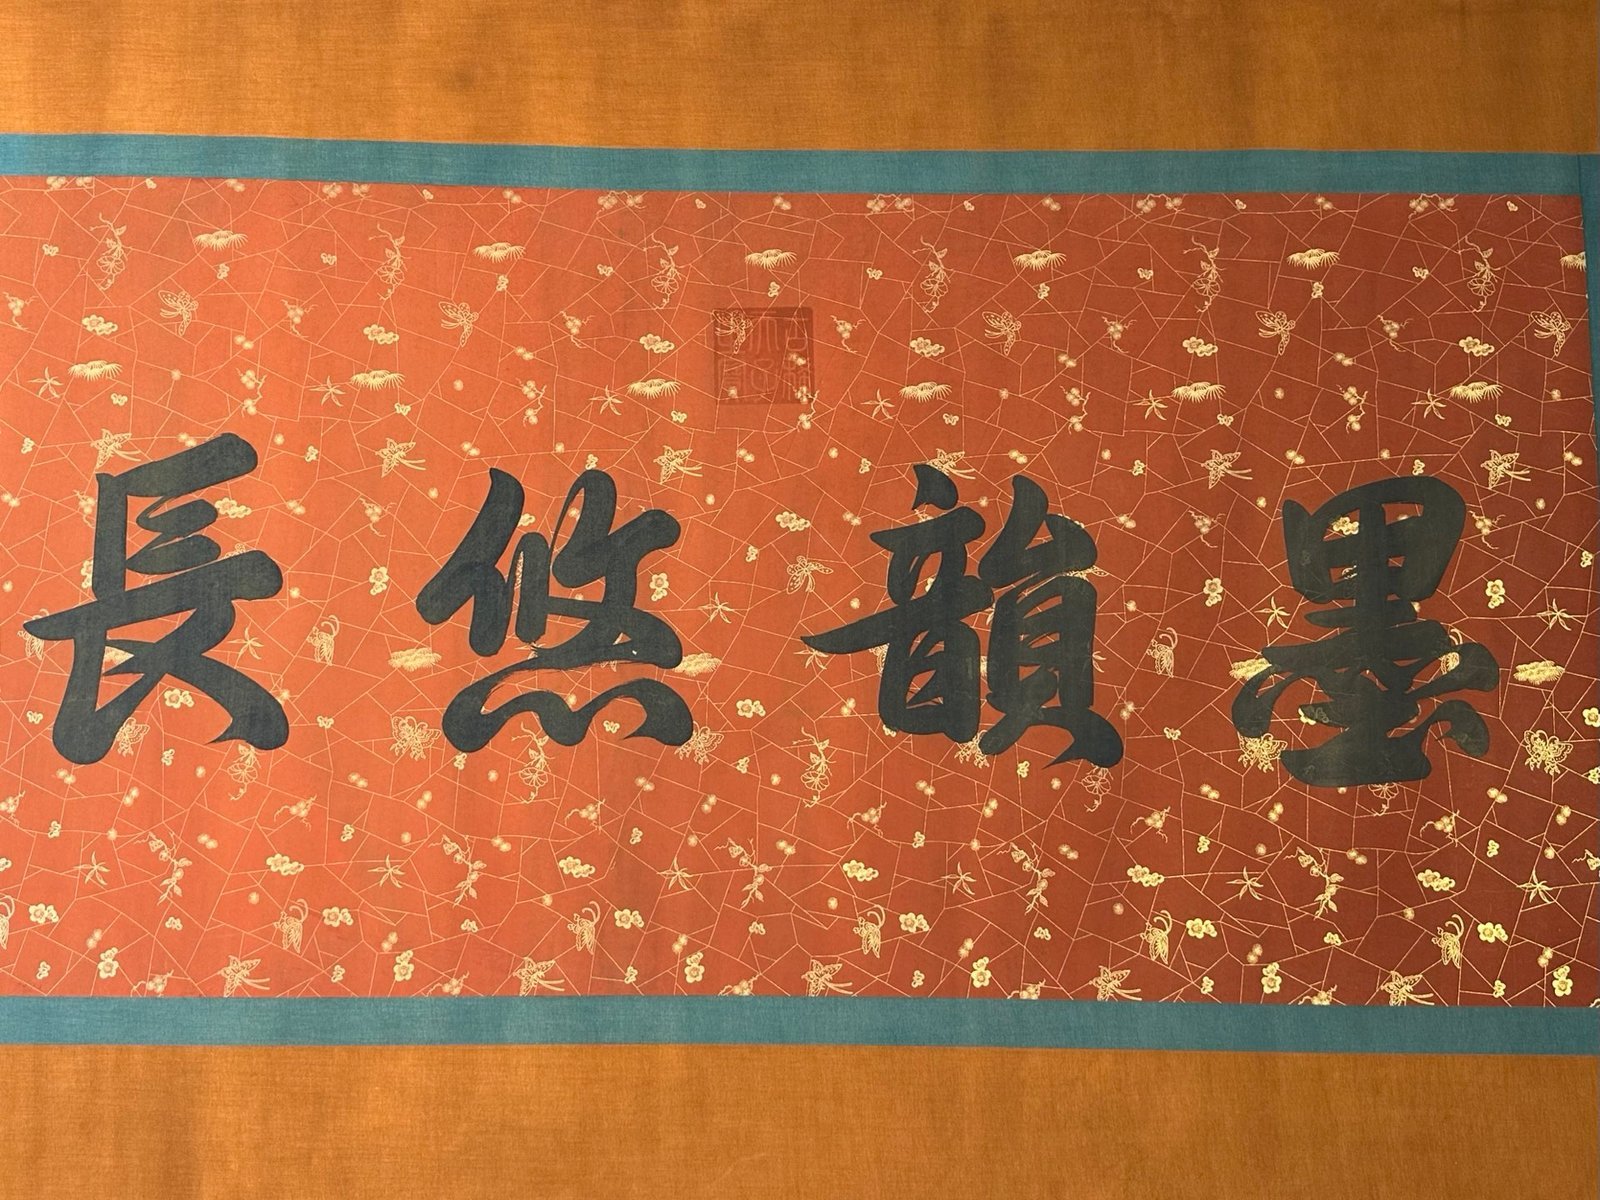 墨韻悠長